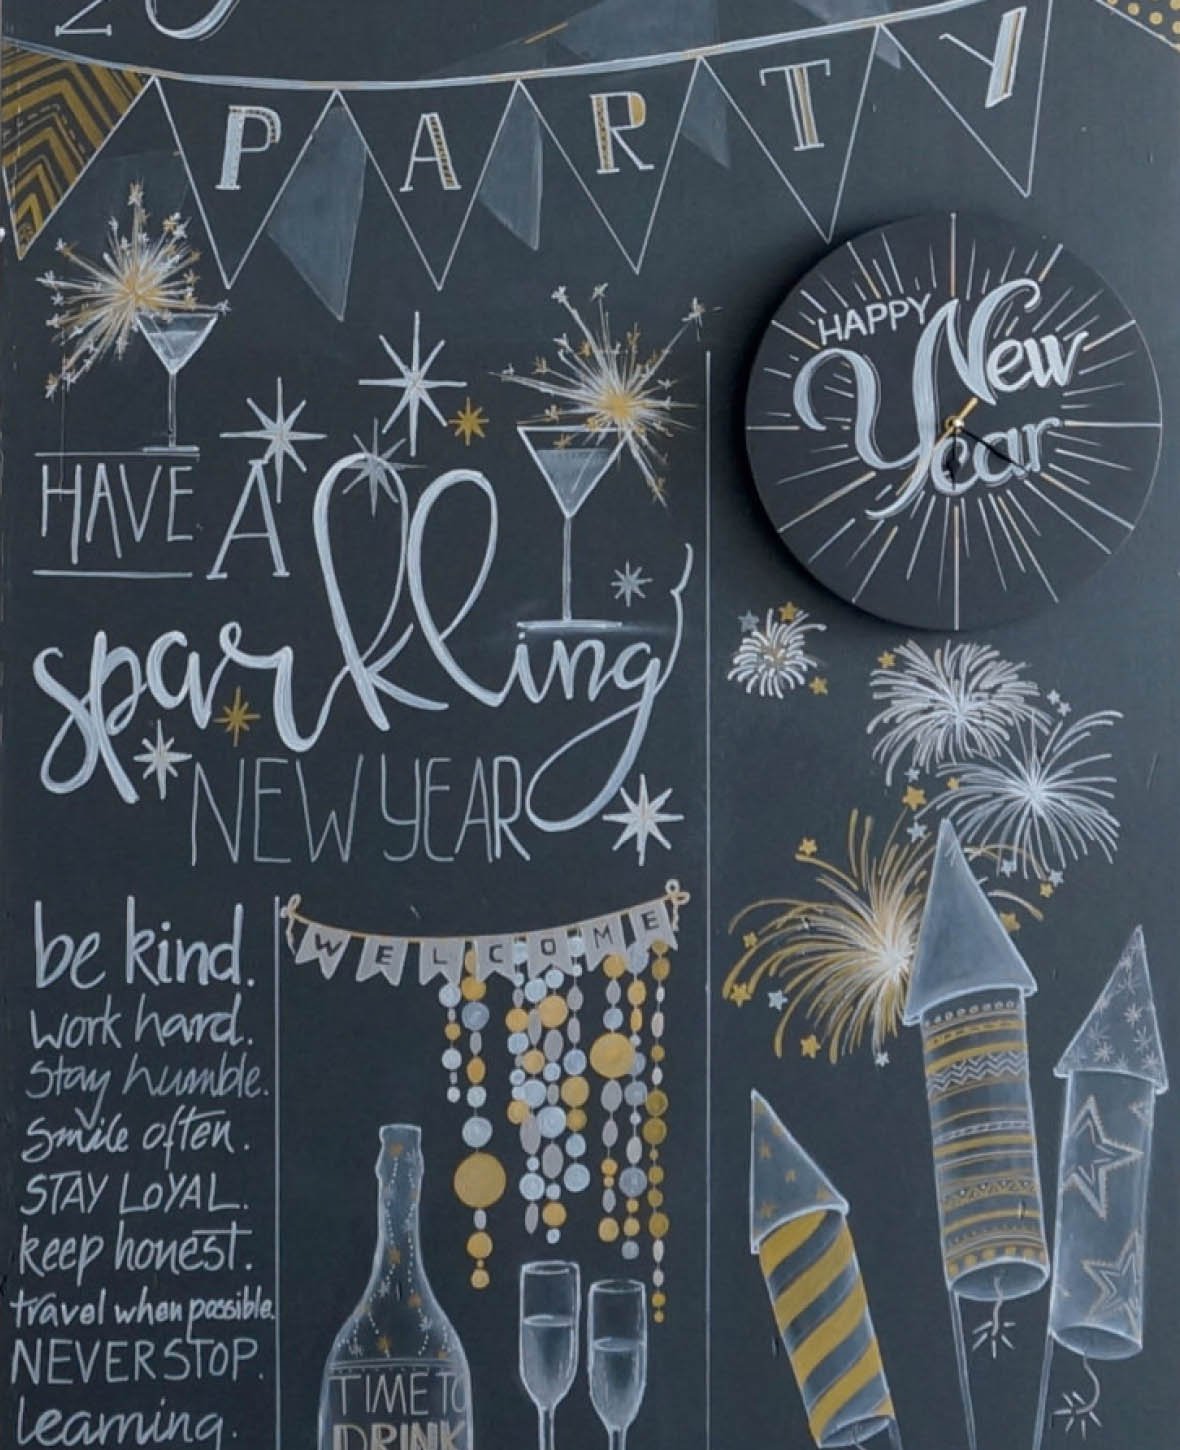 20
PARTY
HAPPY
New
Year
HAVE A
sparkling
NEW YEAR
WELCOME
be kind.
work hard.
stay humble.
Smile often.
STAY LOYAL.
keep honest.
travel when possible.
NEVER STOP.
learning.
TIME TO
DRINK